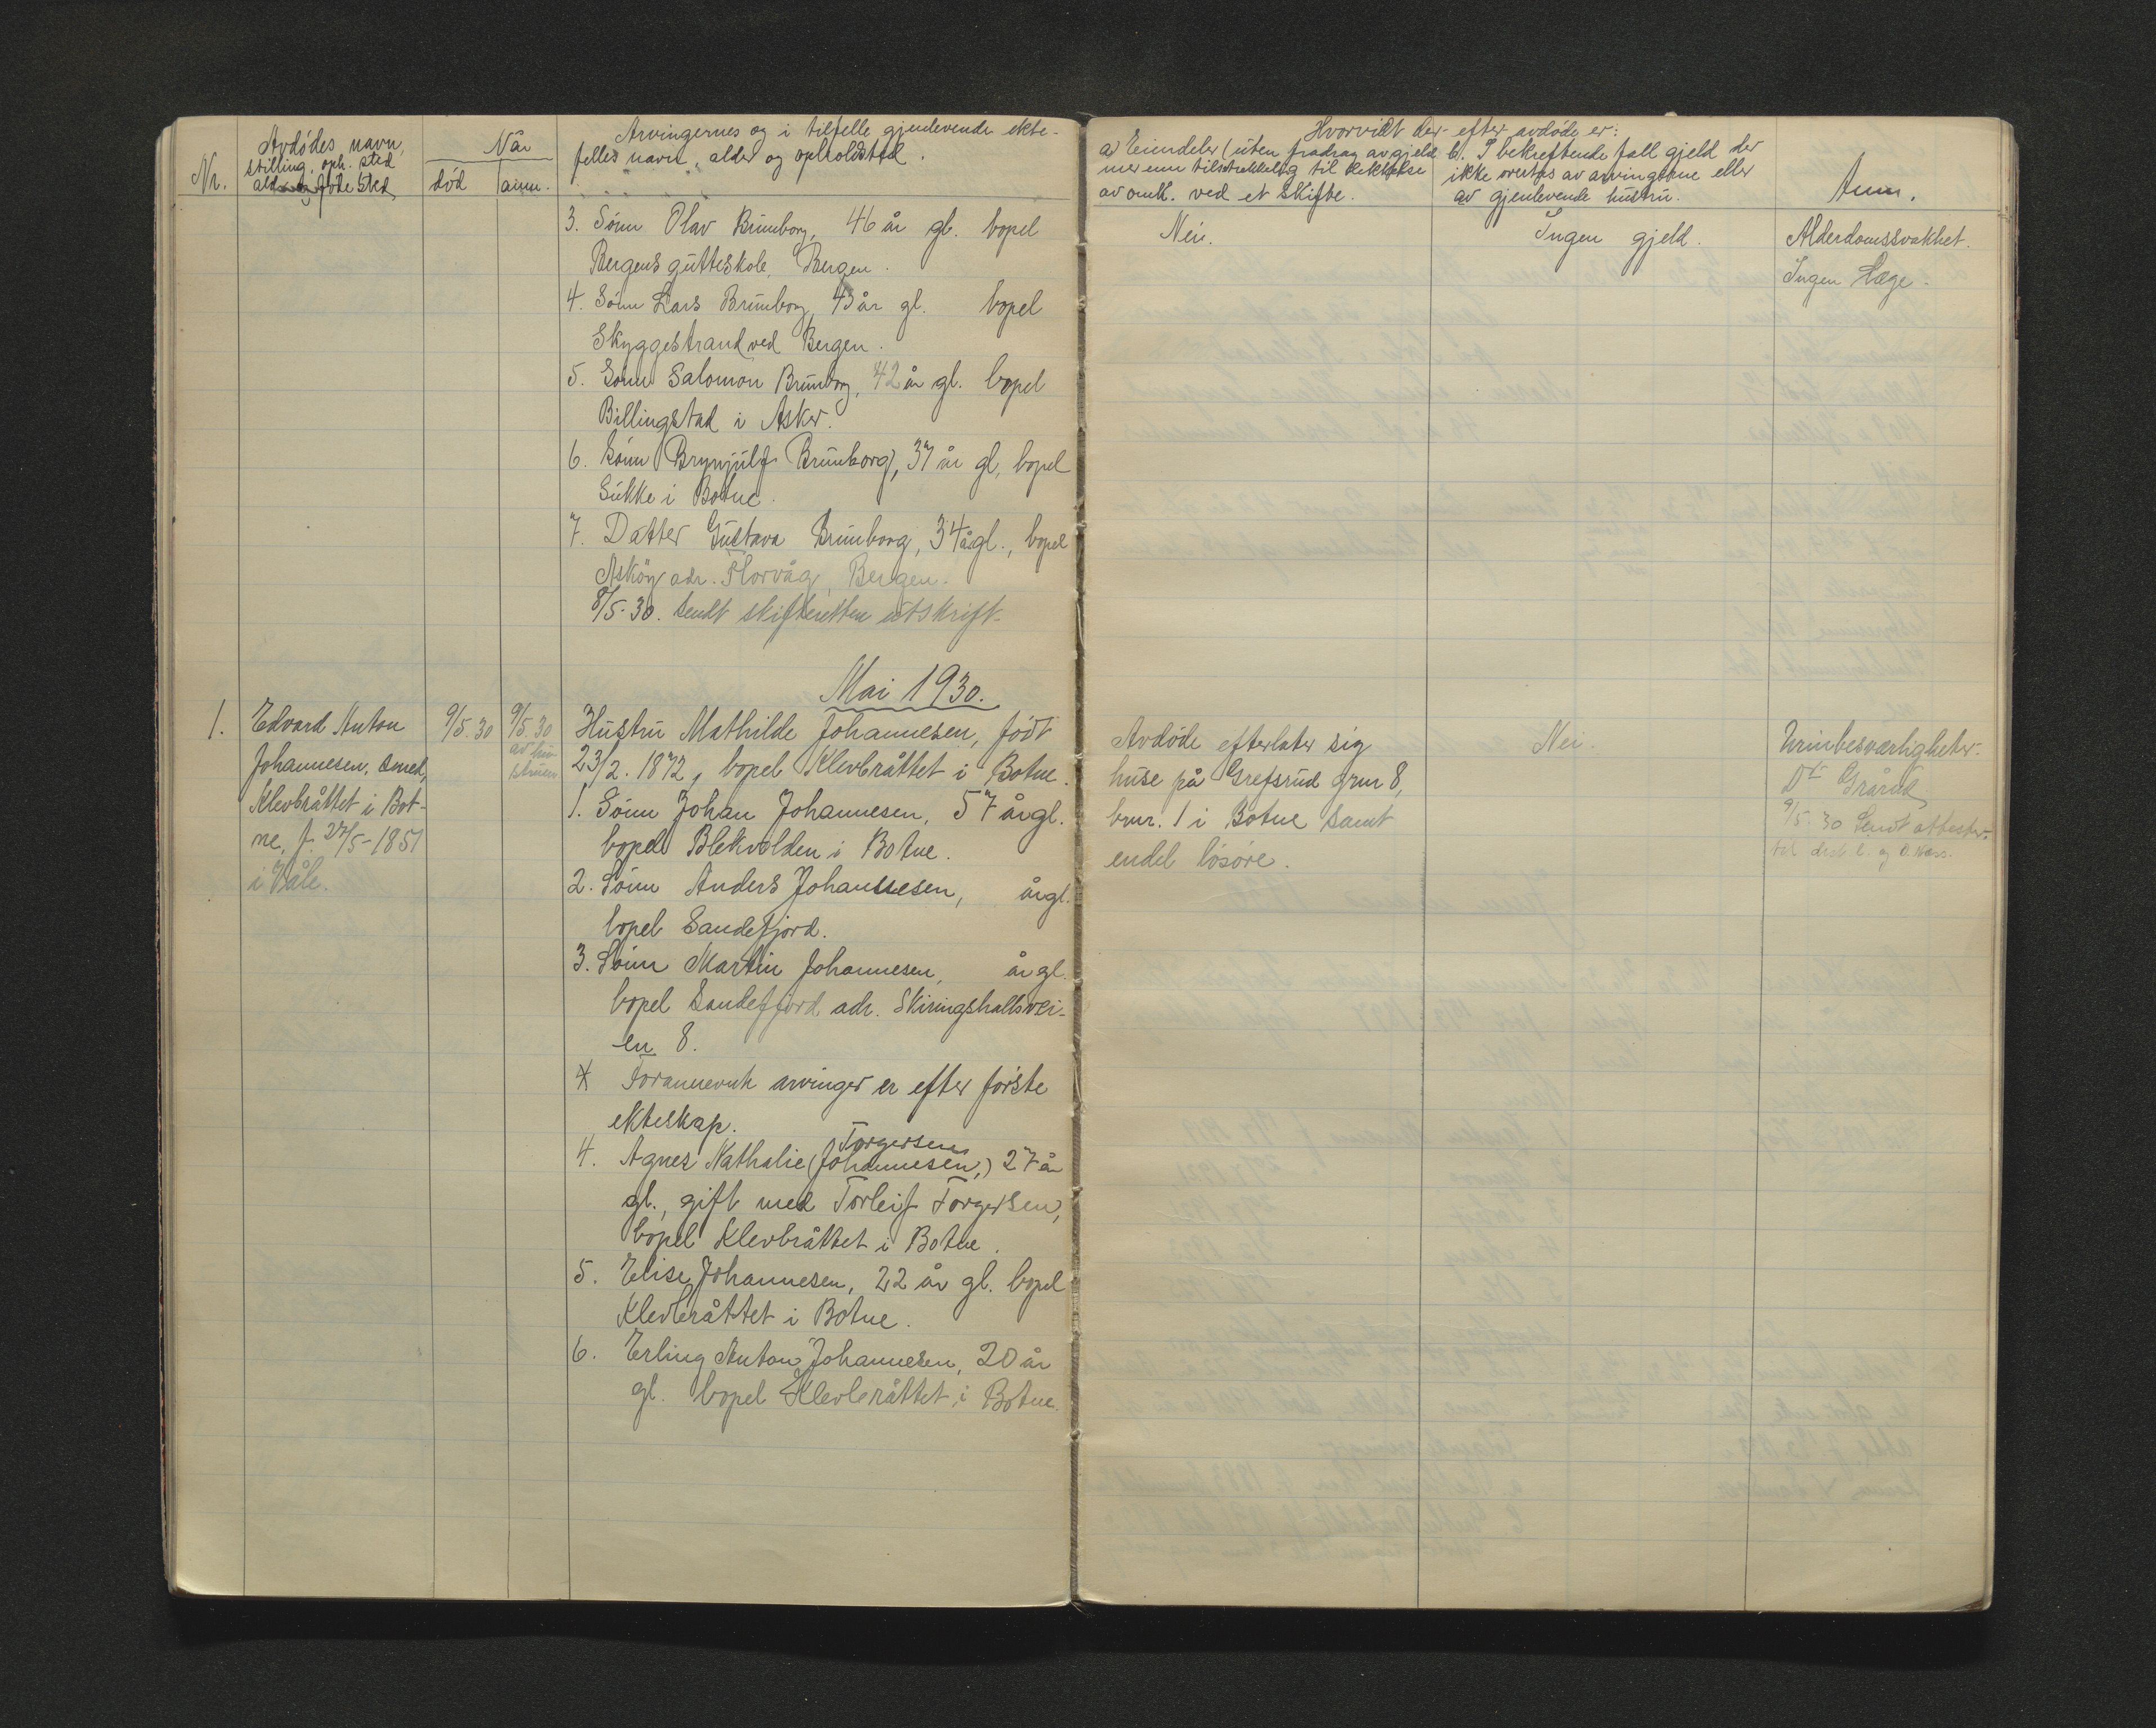 Nr.
Avdødes navn,
stilling, oph. sted
alder og føde sted
Når
død
anm.
Arvingernes og i tilfelle gjenlevende ekte-
felles navn, alder og opholdsted.
3. Sønn Olav Brunborg, 46 år gl. bopel
Bergens gutteskole, Bergen.
4. Sønn Lars Brunborg, 43 år gl. bopel
Skyggestrand ved Bergen.
5. Sønn Salomon Brunborg, 42 år gl. bopel
Billingstad i Asker.
6. Sønn Brynjulf Brunborg, 37 år gl, bopel
Sukke i Botne.
7. Datter Gustava Brunborg, 34 år gl., bopel
Askøy adr. Florvåg, Bergen.
8/5-30. Sendt skifteretten utskrift.
Mai 1930.
1.
Edvard Anton
Johannesen, smed,
Klevbråttet i Bot-
ne, f. 27/5-1851
i Våle.
9/5.30
9/5.30
av hu-
struen
Hustru Mathilde Johannesen, født
23/2. 1872, bopel Klevbråttet i Botne.
1. Sønn Johan Johannesen, 57 år gl.
bopel Blekvolden i Botne.
2. Sønn Anders Johannesen, år gl.
bopel Sandefjord.
3. Sønn Martin Johannesen, år gl.
bopel Sandefjord adr. Skiringshallsvei-
en 8.
Forannevnte arvinger er efter første
ekteskap.
Torgersen
4. Agnes Nathalie (Johannesen,) 27 år
gl., gift med Torleif Torgersen,
bopel Klevbråttet i Botne.
5. Elise Johannesen, 22 år gl. bopel
Klevbråttet i Botne.
6. Erling Anton Johannesen, 20 år
gl. bopel Klevbråttet i Botne.
Hvorvidt der efter avdøde er:
a) Eiendeler (uten fradrag av gjeld
mer enn tilstrekkelig til dekkelse
av omk. ved et skifte.
b). I bekreftende fall gjeld der
ikke overtas av arvingerne eller
av gjenlevende hustru.
Anm.
Nei.
Ingen gjeld.
Alderdomssvakhet.
Ingen Læge.
Avdøde efterlater sig
huse på Grefsrud grnr 8,
brnr. 1 i Botne samt
endel løsøre.
Nei.
Urinbesværligheter.
Dr Gråruk
9/5.30 Sendt attester
til